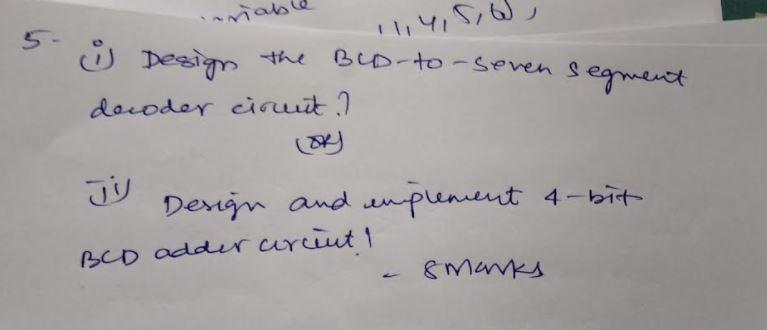 variable
1,1,4,5,6,
5- i) Design the BCD-to-seven segment
decoder circuit?
(OR)
ii) Design and implement 4-bit
BCD adder circuit!
- 8 Marks